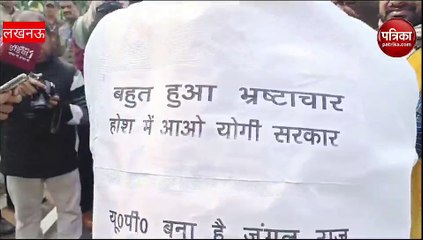 लखनऊ
पत्रिका
patrika.com
बहुत हुआ भ्रष्टाचार
होश में आओ योगी सरकार
यू0पी0 बना है जंगल राज